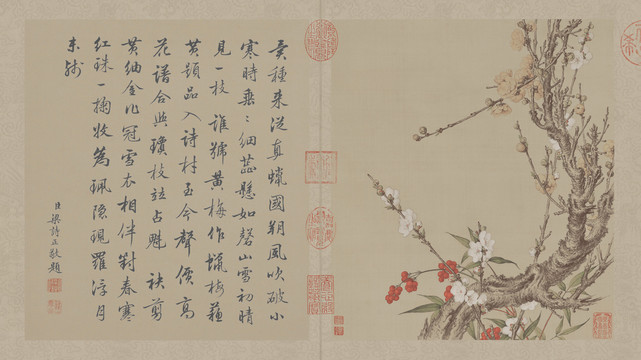 異種來從真蠟國朔風吹破小
寒時垂垂細蕊懸如磬山雪初晴
見一枝誰號黃梅作蠟梅蘓
黃題品入詩材至今聲價高
花譜合與瓊枝竝占魁袂剪
黃紬金作冠雪衣相伴對春寒
紅珠一掬收為珮隱現羅浮月
未殘
臣梁詩正敬題